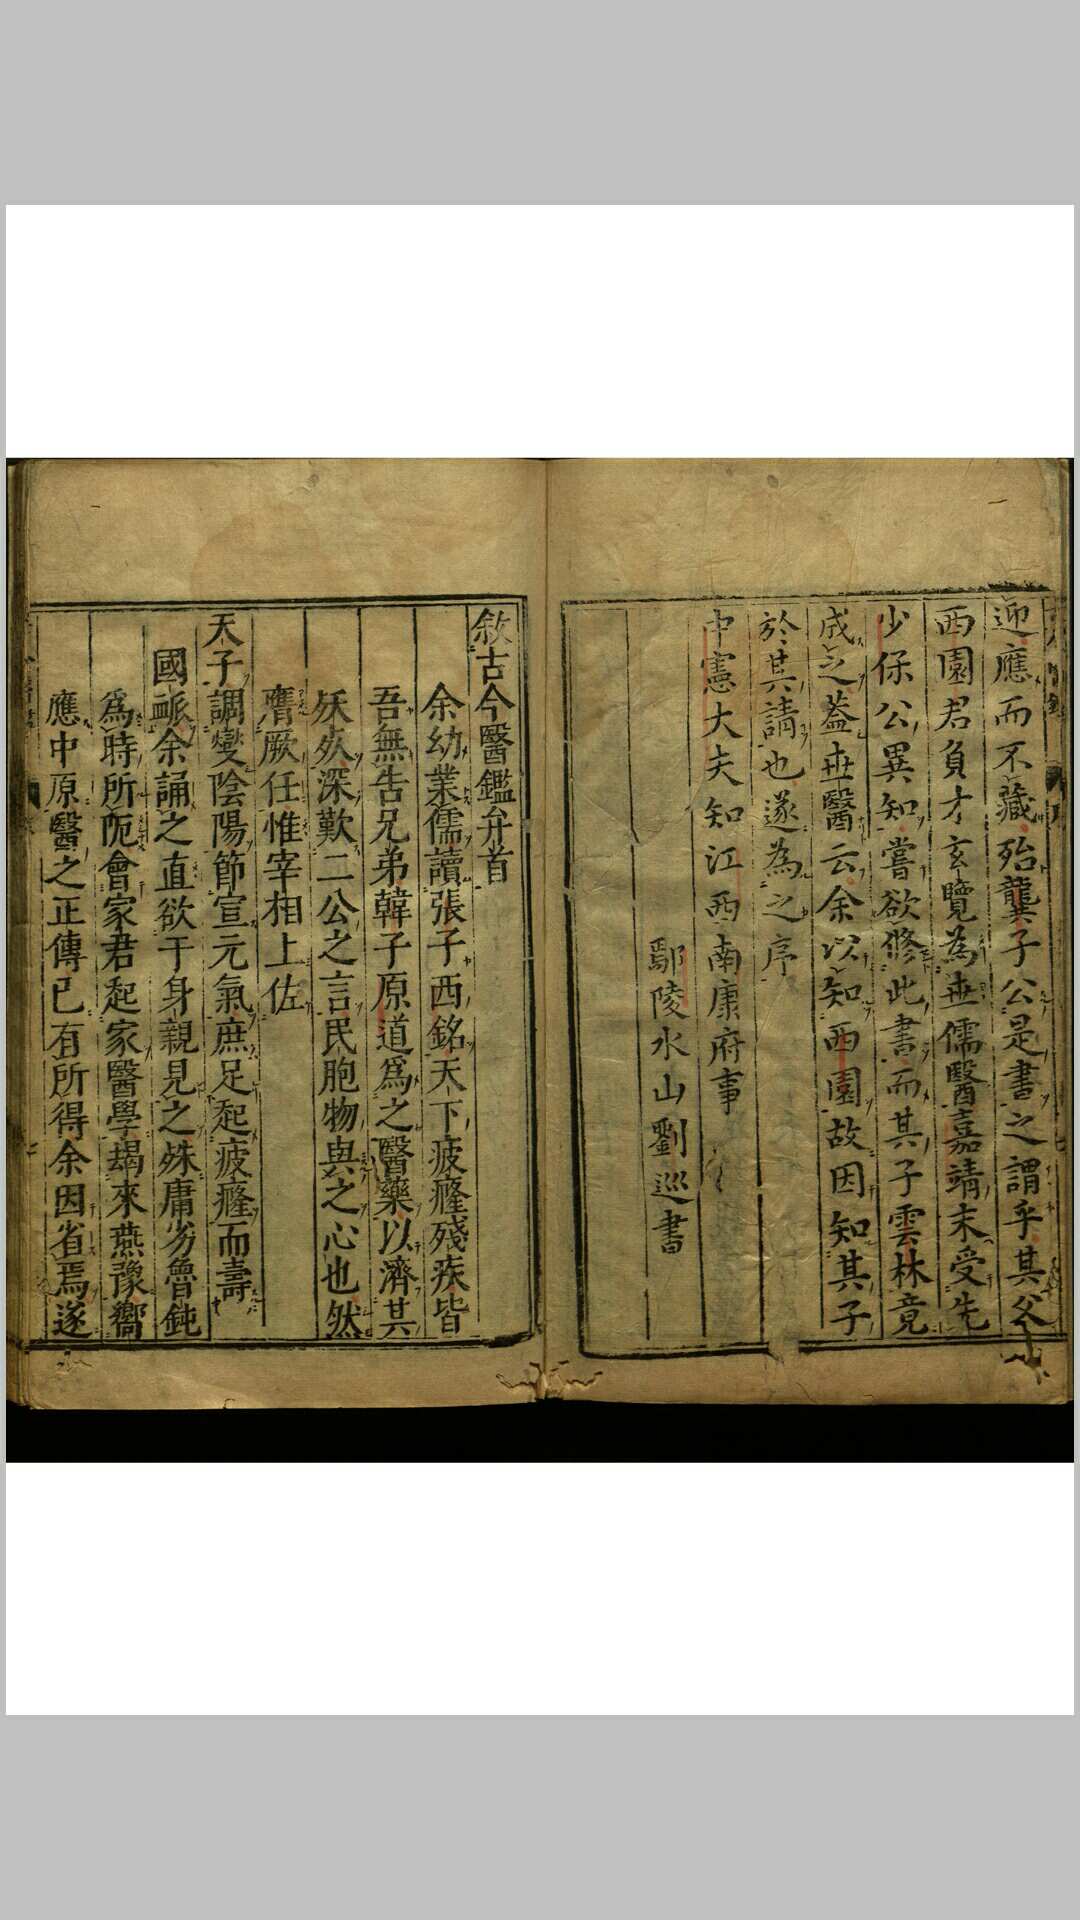 迎應而不藏殆龔子公是書之謂乎其父
西園君負才玄覽為世儒醫嘉靖末受先
少保公異知嘗欲修此書而其子雲林竟
成之蓋世醫云余以知西園故因知其子
於其請也遂為之序
中憲大夫知江西南康府事
鄢陵水山劉巡書
敘古今醫鑑弁首
余幼業儒讀張子西銘天下疲癃殘疾皆
吾無告兄弟韓子原道爲之醫藥以濟其
夭死深歎二公之言民胞物與之心也然
膺厥任惟宰相上佐
天子調燮陰陽節宣元氣庶足起疲癃而壽
國脈余誦之直欲于身親見之殊庸劣魯鈍
爲時所阨會家君起家醫學朅來燕豫嚮
應中原醫之正傳已有所得余因省焉遂